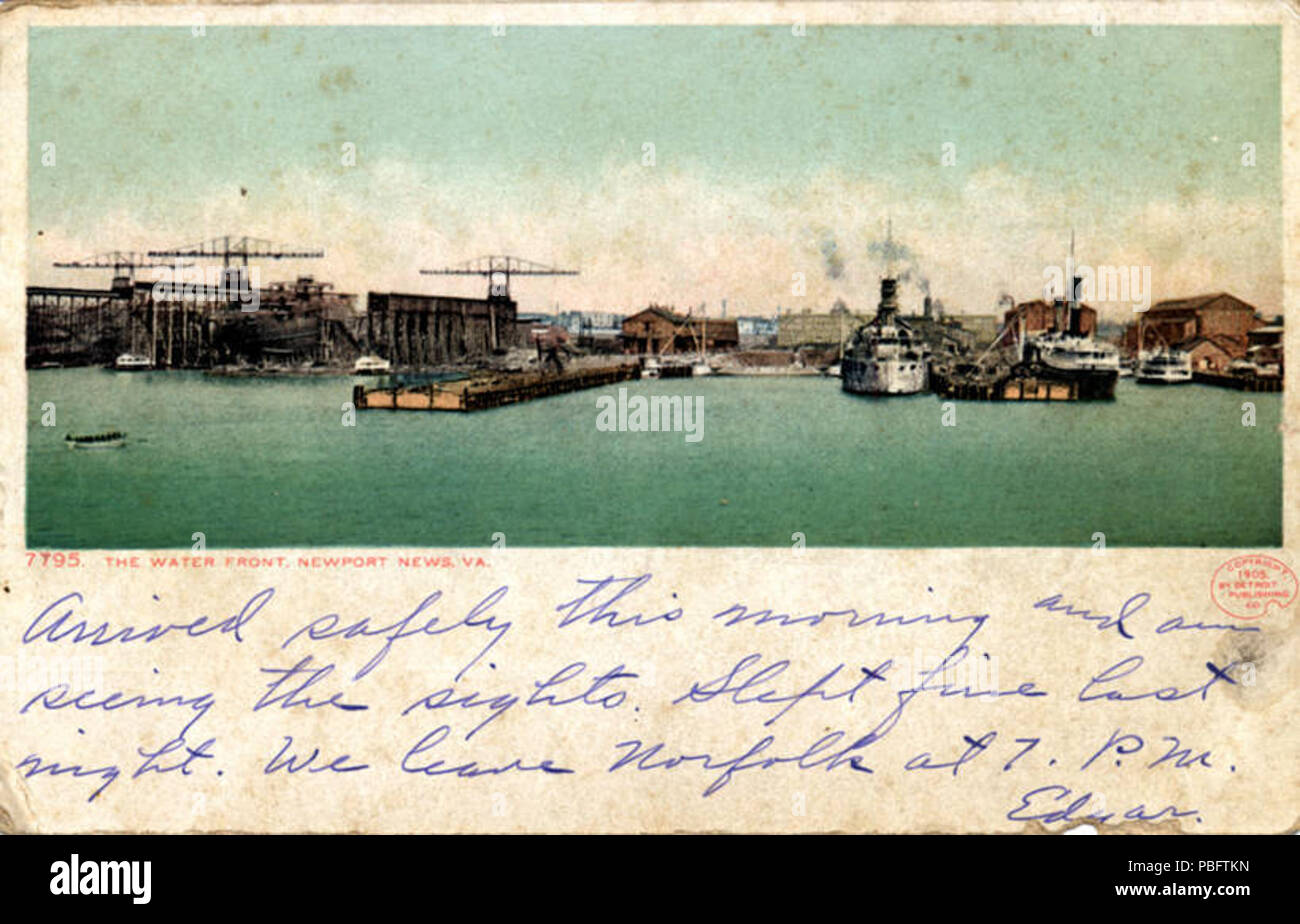 7795. THE WATER FRONT, NEWPORT NEWS, VA.
COPYRIGHT,
1905,
BY DETROIT
PUBLISHING
CO.
Arrived safely this morning and am
seeing the sights. Slept fine last
night. We leave Norfolk at 7. P.M.
Edgar.
alamy
Image ID: PBFTKN
www.alamy.com